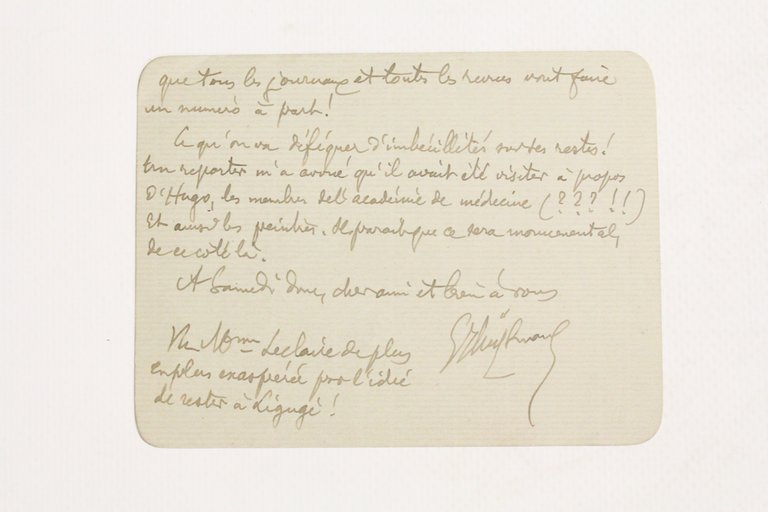 que tous les journaux et toutes les revues vont faire
un numéro à part !
Ce qu'on va déféquer d'imbécillités sur ses restes !
Un reporter m'a avoué qu'il avait été visiter à propos
d'Hugo, les membres de l'académie de médecine (? ? ? !!)
Et aussi les peintres. Il paraît que ce sera monumental,
de ce côté là.
A Samedi donc, cher ami et bien à vous
GJ Huysmans
Vu Mme Leclaire de plus
en plus exaspérée par l'idée
de rester à Ligugé !